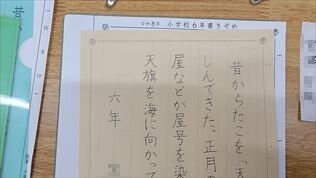 令和8年 小学校6年書きぞめ
昔からたこを「天
しんできた。正月の
屋などが屋号を染
天旗を海に向かって
六年
昔